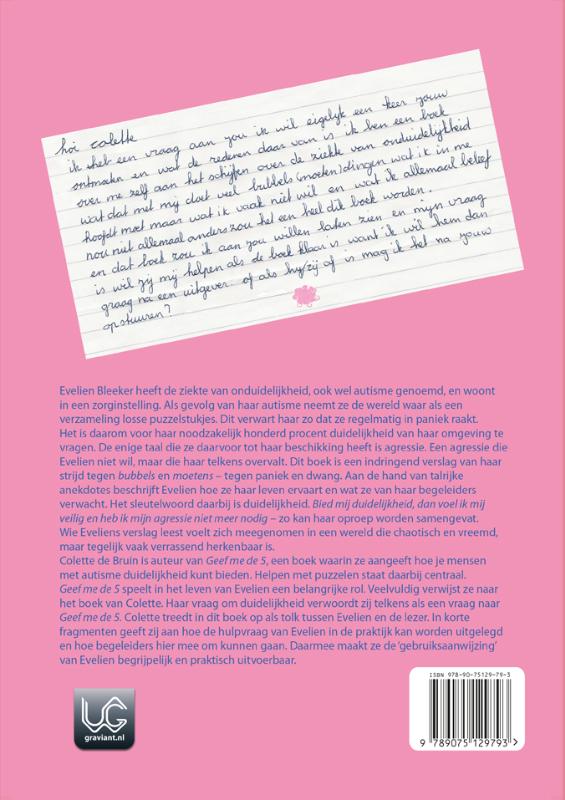 hoi colette
ik heb een vraag aan jou ik wil eigelijk een keer jouw
ontmoeten en wat de rederen daar van is ik ben een boek
over me zelf aan het schijfen over de ziekte van onduidelijkheid
wat dat met mij doet veel bubbels (moeten) dingen wat ik in me
hoofdt moet maar wat ik vaak niet wil en wat ik allemaal beleef
nou niet allemaal anders zou het een heel dik boek worden.
en dat boek zou ik aan jou willen laten zien en mijn vraag
is wil jij mij helpen als de boek klaar is want ik wil hem dan
graag na een uitgever. of als hij/zij of is mag ik het na jouw
opstuuren?
Evelien Bleeker heeft de ziekte van onduidelijkheid, ook wel autisme genoemd, en woont
in een zorginstelling. Als gevolg van haar autisme neemt ze de wereld waar als een
verzameling losse puzzelstukjes. Dit verwart haar zo dat ze regelmatig in paniek raakt.
Het is daarom voor haar noodzakelijk honderd procent duidelijkheid van haar omgeving te
vragen. De enige taal die ze daarvoor tot haar beschikking heeft is agressie. Een agressie die
Evelien niet wil, maar die haar telkens overvalt. Dit boek is een indringend verslag van haar
strijd tegen bubbels en moetens – tegen paniek en dwang. Aan de hand van talrijke
anekdotes beschrijft Evelien hoe ze haar leven ervaart en wat ze van haar begeleiders
verwacht. Het sleutelwoord daarbij is duidelijkheid. Bied mij duidelijkheid, dan voel ik mij
veilig en heb ik mijn agressie niet meer nodig – zo kan haar oproep worden samengevat.
Wie Eveliens verslag leest voelt zich meegenomen in een wereld die chaotisch en vreemd,
maar tegelijk vaak verrassend herkenbaar is.
Colette de Bruin is auteur van Geef me de 5, een boek waarin ze aangeeft hoe je mensen
met autisme duidelijkheid kunt bieden. Helpen met puzzelen staat daarbij centraal.
Geef me de 5 speelt in het leven van Evelien een belangrijke rol. Veelvuldig verwijst ze naar
het boek van Colette. Haar vraag om duidelijkheid verwoordt zij telkens als een vraag naar
Geef me de 5. Colette treedt in dit boek op als tolk tussen Evelien en de lezer. In korte
fragmenten geeft zij aan hoe de hulpvraag van Evelien in de praktijk kan worden uitgelegd
en hoe begeleiders hier mee om kunnen gaan. Daarmee maakt ze de ‘gebruiksaanwijzing’
van Evelien begrijpelijk en praktisch uitvoerbaar.
UG
graviant.nl
ISBN 978-90-75129-79-3
9 789075 129793 >